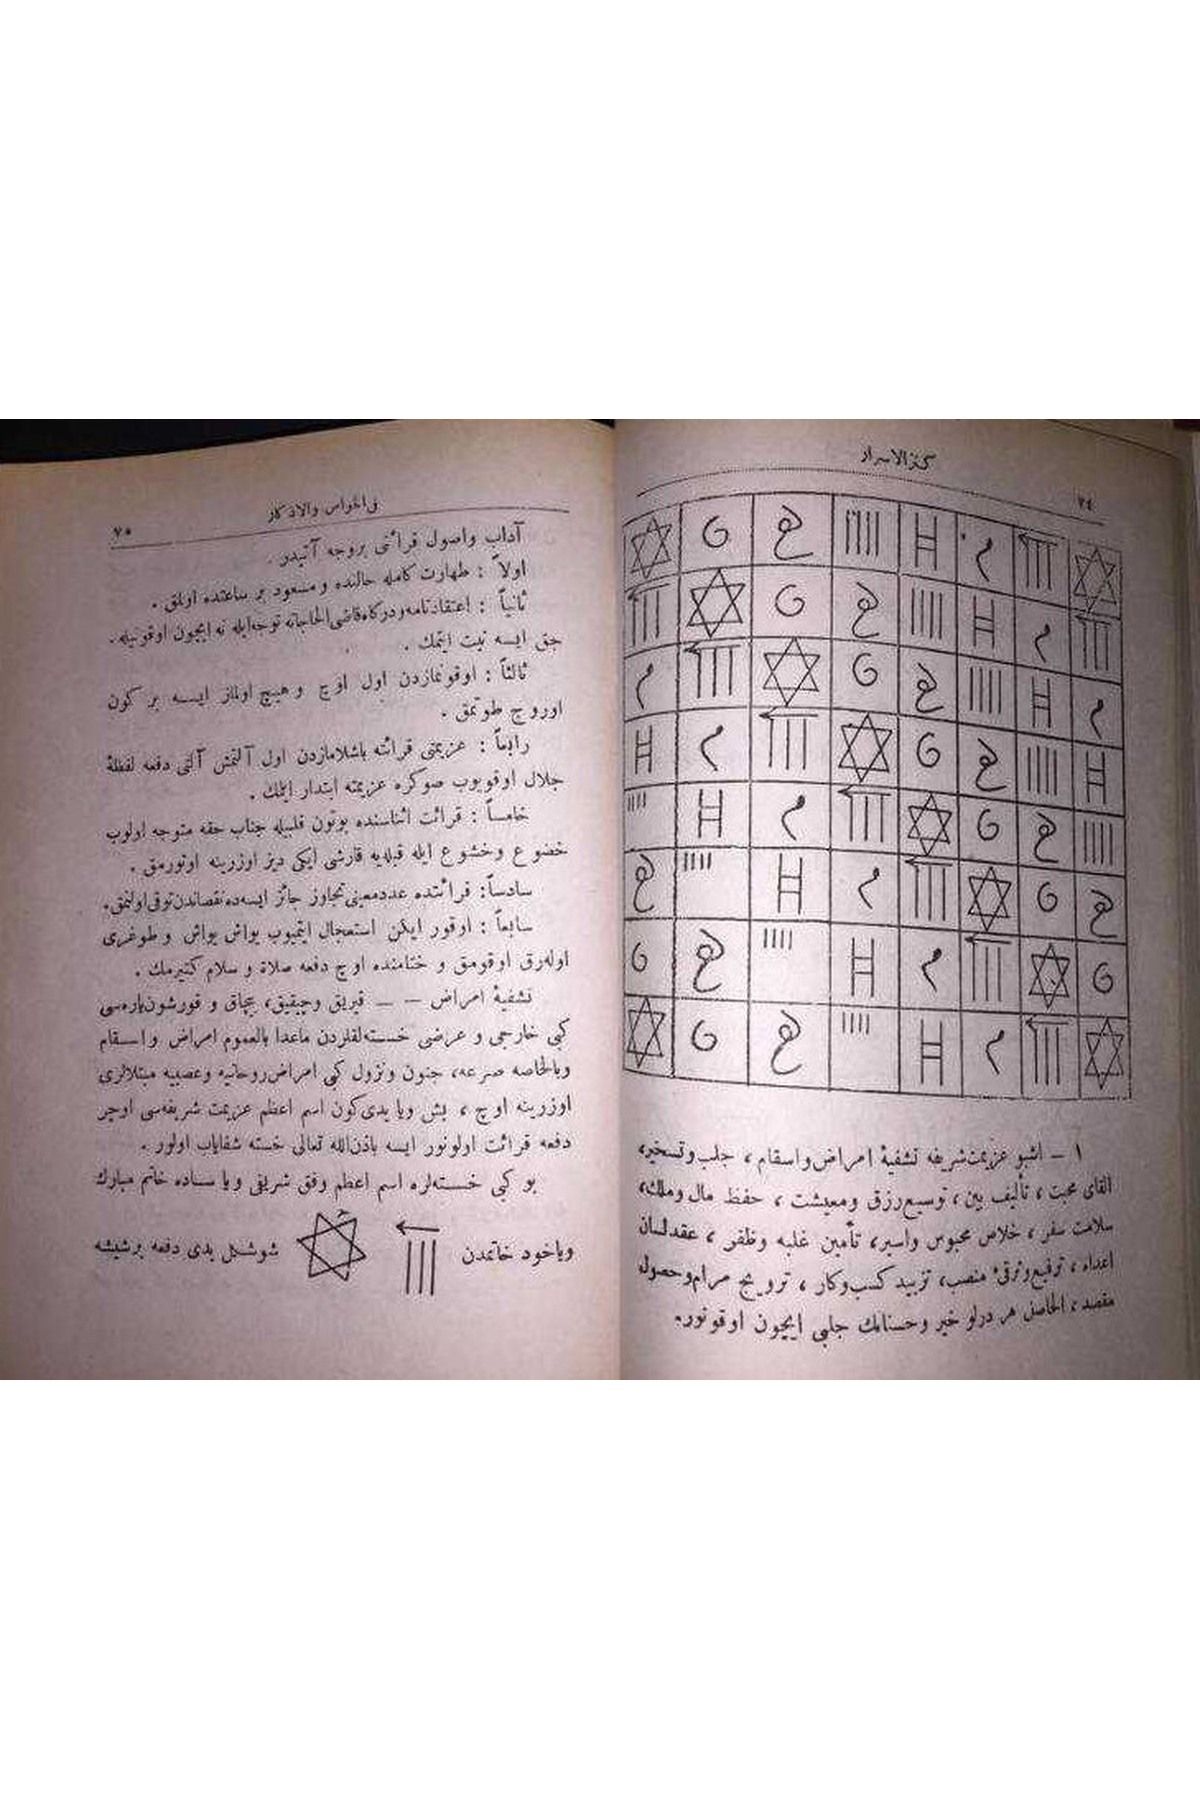 كنز الاسرار
٧٤
١ – اشبو عزيمت شريفه تشفيۀ امراض واسقام ، جلب وتسخير،
القای محبت ، تأليف بين ، توسيع رزق ومعيشت ، حفظ مال وملك،
سلامت سفر ، خلاص محبوس واسير، تأمين غلبه وظفر ، عقد لسان
اعداء ، ترفيع وترقئ منصب ، تزييد كسب وكار ، ترويج مرام وحصول
مقصد ، الحاصل هر درلو خير وحسناتك جلبی ايچون اوقونور.
فی الخواص والاذكار
٧٥
آداب واصول قرائتی بروجه آتيدر .
اولاً : طهارت كامله حالنده و مسعود بر ساعتده اولمق .
ثانياً : اعتقاد تامه ودركاه قاضی الحاجاته توجه ايله نه ايچون اوقونيله
جق ايسه نيت ايتمك .
ثالثاً : اوقونمازدن اول اوچ و هيچ اولماز ايسه بر كون
اوروچ طوتمق .
رابعاً : عزيمتی قرائته باشلامازدن اول آلتمش آلتی دفعه لفظۀ
جلال اوقويوب صوكره عزيمته ابتدار ايتمك .
خامساً : قرائت اثناسنده بوتون قلبيله جناب حقه متوجه اولوب
خضوع وخشوع ايله قبله‌يه قارشی ايكی ديز اوزرينه اوتورمق .
سادساً : قرائتده عدد معينی تجاوز جائز ايسه‌ده نقصاندن توقی اولنمق.
سابعاً : اوقور ايكن استعجال ايتميوب يواش يواش و طوغری
اوله‌رق اوقومق و ختامنده اوچ دفعه صلاة و سلام كتيرمك .
تشفيۀ امراض – – قيريق وچيقيق، بيچاق و قورشون ياره‌سی
كبی خارجی و عرضی خسته‌لقلردن ماعدا بالعموم امراض واسقام
وبالخاصه صرعه، جنون ونزول كبی امراض روحانيه وعصبيه مبتلالری
اوزرينه اوچ ، بش ويا يدی كون اسم اعظم عزيمت شريفه‌سی اوچر
دفعه قرائت اولونور ايسه باذن الله تعالی خسته شفاياب اولور .
بو كبی خسته‌لره اسم اعظم وفق شريفی ويا ساده خاتم مبارك
وياخود خاتمدن شو شكل يدی دفعه بر شيشه